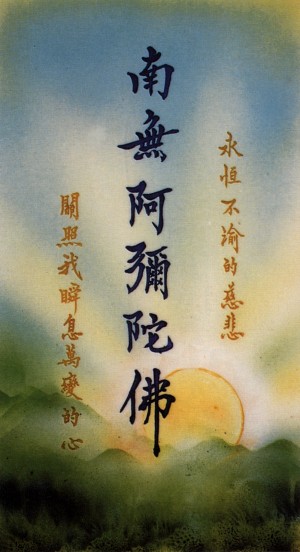 永恒不諭的慈悲
南無阿彌陀佛
關照我瞬息萬變的心